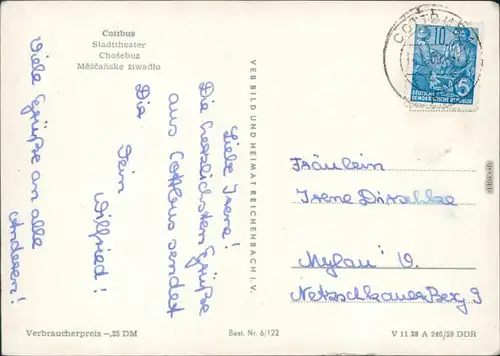 Cottbus
Stadttheater
Chośebuz
Měsćańske źiwadło
Liebe Irene!
Die herzlichsten Grüße
aus Cottbus sendet
Dir
Dein
Wilfried!
Viele Grüße an alle
Anderen!
VEB BILD UND HEIMAT REICHENBACH I. V.
COTTBUS
10
DEUTSCHE
DEMOKRATISCHE REPUBLIK
5
Fräulein
Irene
Mylau V.
Netzschkauer Berg 9
Verbraucherpreis –,25 DM
Best. Nr. 6/122
V 11 28 A 246/58 DDR